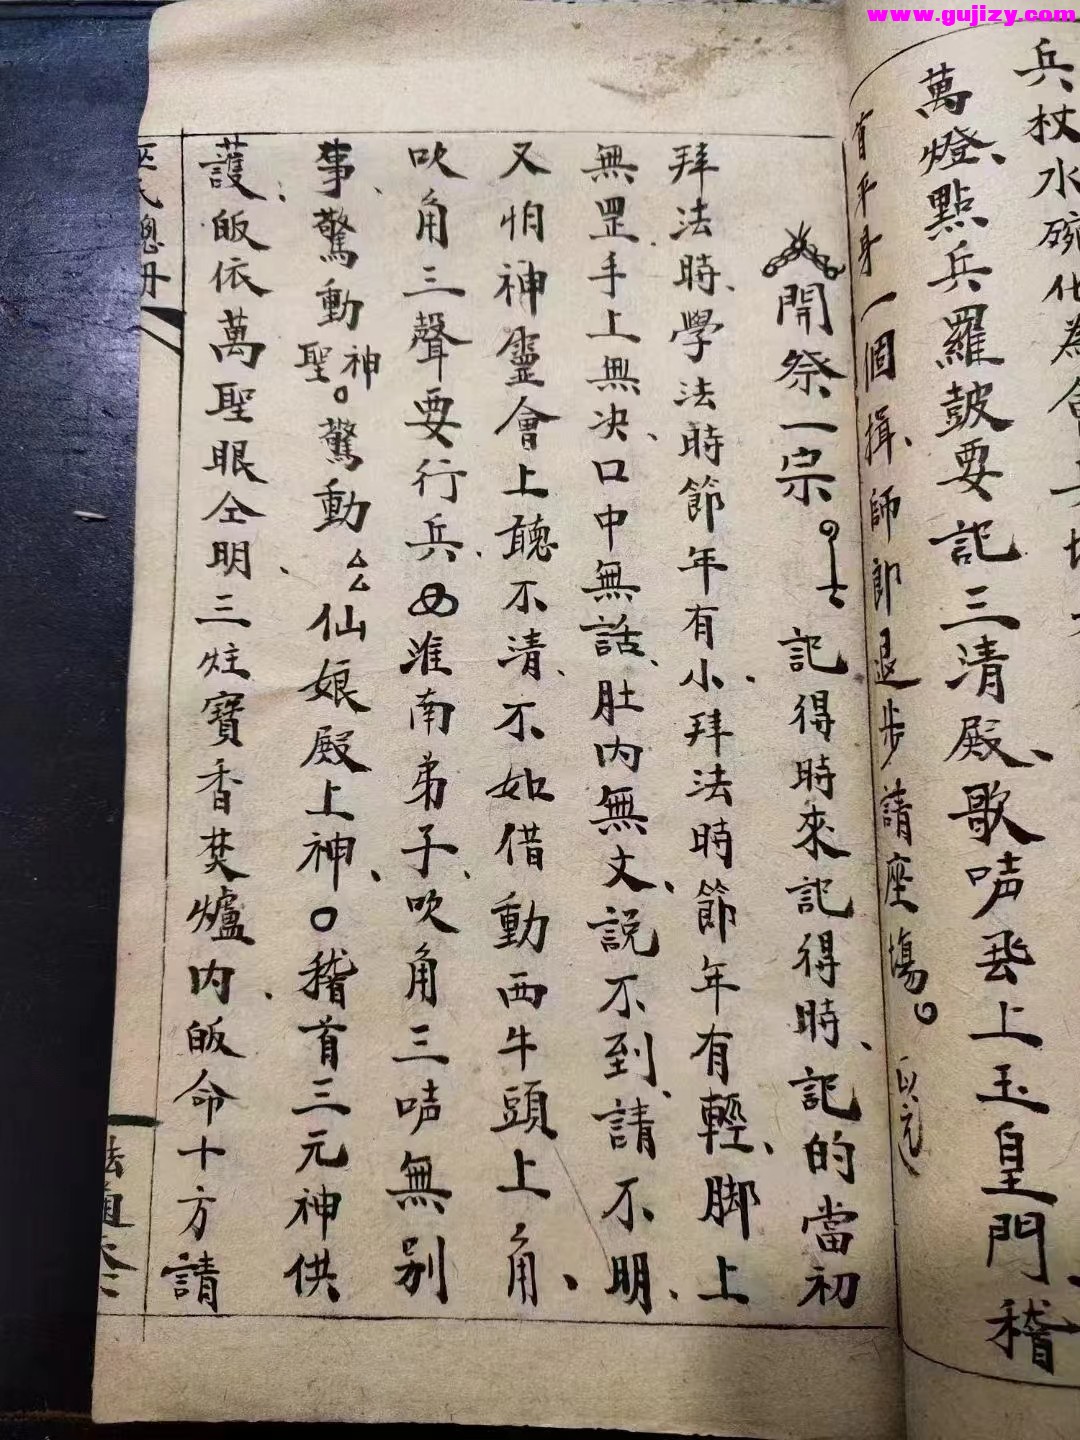 www.gujizy.com
兵杖水碗化為
萬燈點兵羅鼓要記三清殿、歌声飛上玉皇門、稽
首平身一個揖、師郎退步請座塲。
開祭一宗。記得時來記得時、記的當初
拜法時、學法時節年有小、拜法時節年有輕、脚上
無罡、手上無决、口中無話、肚内無文、說不到、請不明、
又怕神靈會上聽不清、不如借動西牛頭上角、
吹角三聲要行兵、又淮南弟子、吹角三声無别
事、驚動神聖。驚動厶厶仙娘殿上神、稽首三元神供
護、皈依萬聖眼仝明、三炷寶香焚爐内、皈命十方請
巫氏總册